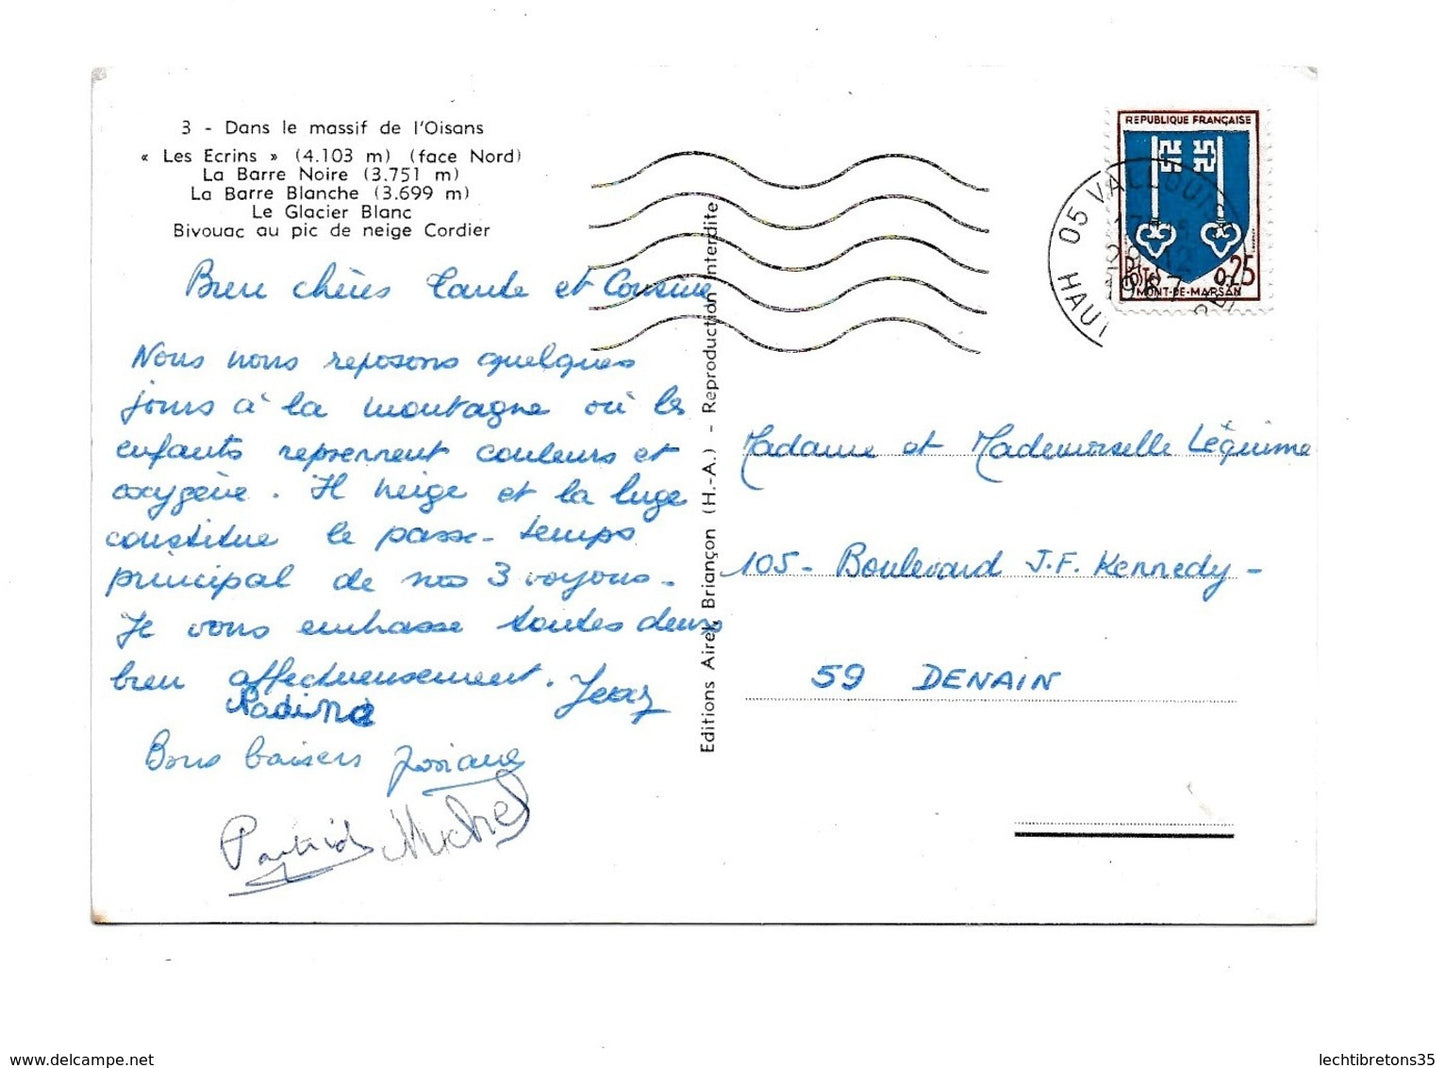 3 - Dans le massif de l'Oisans
« Les Ecrins » (4.103 m) (face Nord)
La Barre Noire (3.751 m)
La Barre Blanche (3.699 m)
Le Glacier Blanc
Bivouac au pic de neige Cordier
Bien chères Tante et Cousine
Nous nous reposons quelques
jours à la montagne où les
enfants reprennent couleurs et
oxygène. Il neige et la luge
constitue le passe-temps
principal de nos 3 voyous-
Je vous embrasse toutes deux
bien affectueusement.
Bons baisers Josiane
Patrick Michel
Editions Airel, Briançon (H.-A.) - Reproduction interdite
REPUBLIQUE FRANÇAISE
POSTES 0,25
MONT-DE-MARSAN
05 VALLOUISE
HAUTES
1967
Madame et Mademoiselle Léquime
105- Boulevard J.F. Kennedy-
59 DENAIN
www.delcampe.net
lechtibretons35